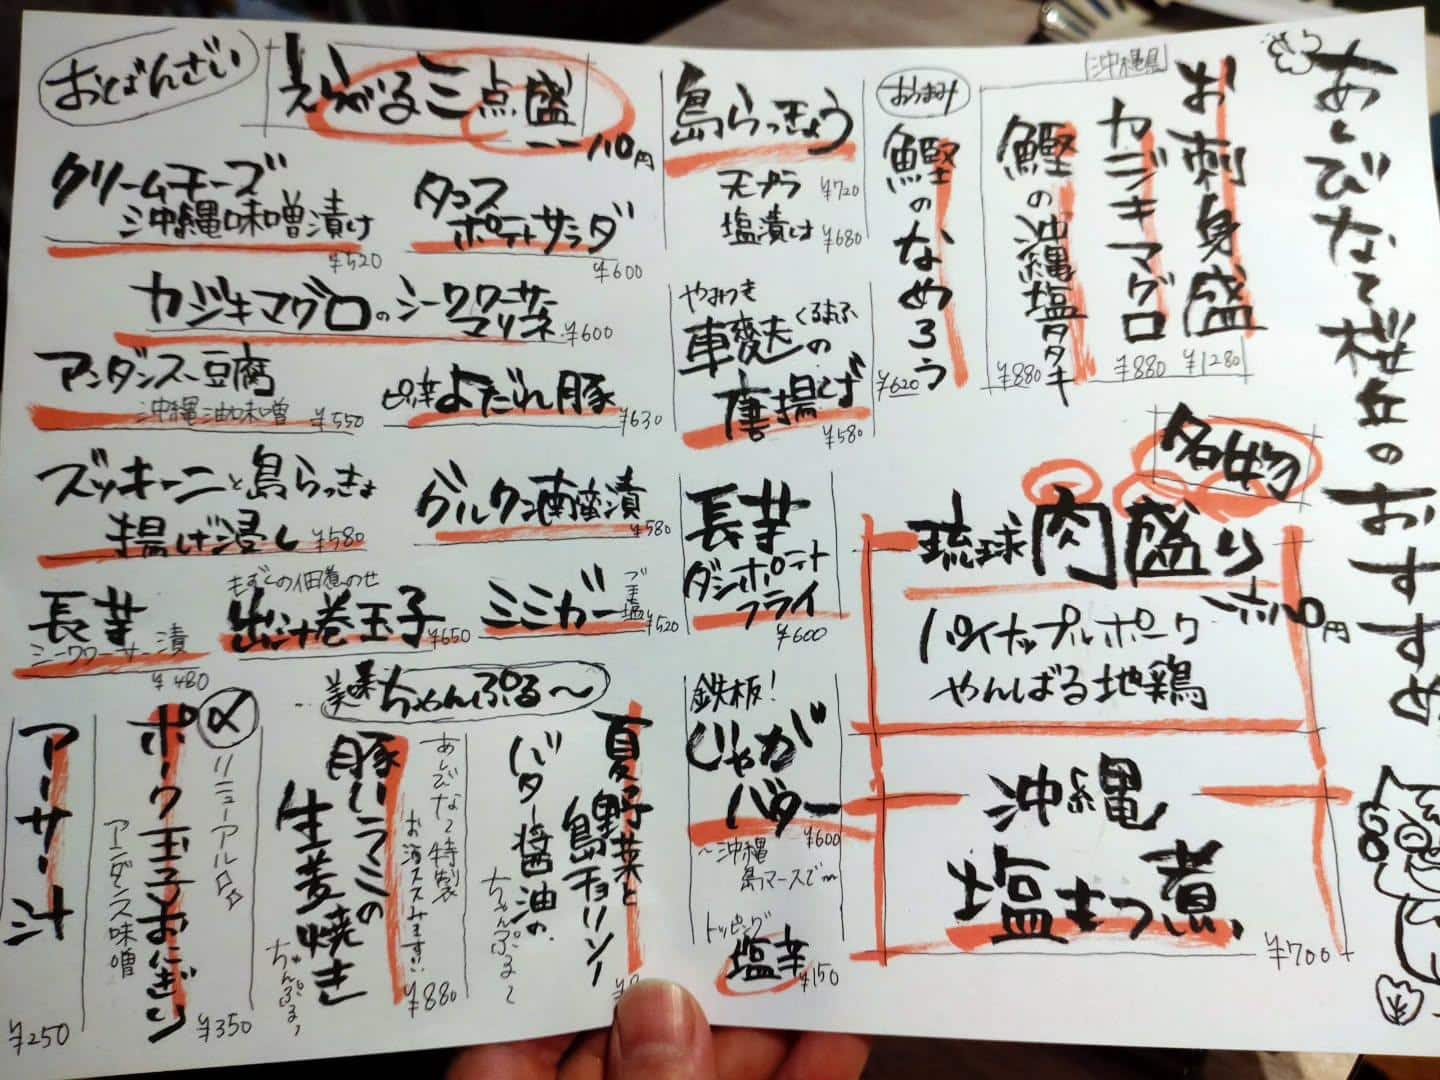 あしびなて桜丘のおすすめ
沖縄県
お刺身盛
¥1280
カジキマグロ
¥880
鰹の沖縄塩タタキ
¥880
おつまみ
鰹のなめろう
¥620
名物
琉球肉盛り
パイナップルポーク
やんばる地鶏
沖縄
塩もつ煮
¥700
島らっきょう
天ププラ ¥720
塩漬け ¥680
やみつき
車麩の
くるまふ
唐揚げ
¥580
長芋
ダシポテト
フライ
¥600
鉄板!
じゃが
バター
¥600
〜沖縄
島マースで〜
トッピング
塩辛
¥150
おばんざい
えらべる三点盛
クリームチーズ
沖縄味噌漬け
¥520
タコス
ポテトサラダ
¥600
カジキマグロのシークワーサー
マリネ ¥600
アンダンスー豆腐
沖縄油味噌 ¥550
ピリ辛よだれ豚
¥630
ズッキーニと島らっきょ
揚げ浸し ¥580
グルクン南蛮漬
¥580
長芋
シークワーサー漬
¥480
もずくの佃煮のせ
出汁巻玉子 ¥650
ミミガー
¥520
美味ちゃんぷる〜
夏野菜と
島チョリソー
バター醤油の
ちゃんぷる〜
あしびなて特製
お酒ススみます!!
豚バラミの
生麦焼き
ちゃんぷる〜
¥880
リニューアル
ポーク玉子おにぎり
アンダンス味噌
¥350
アーサー汁
¥250